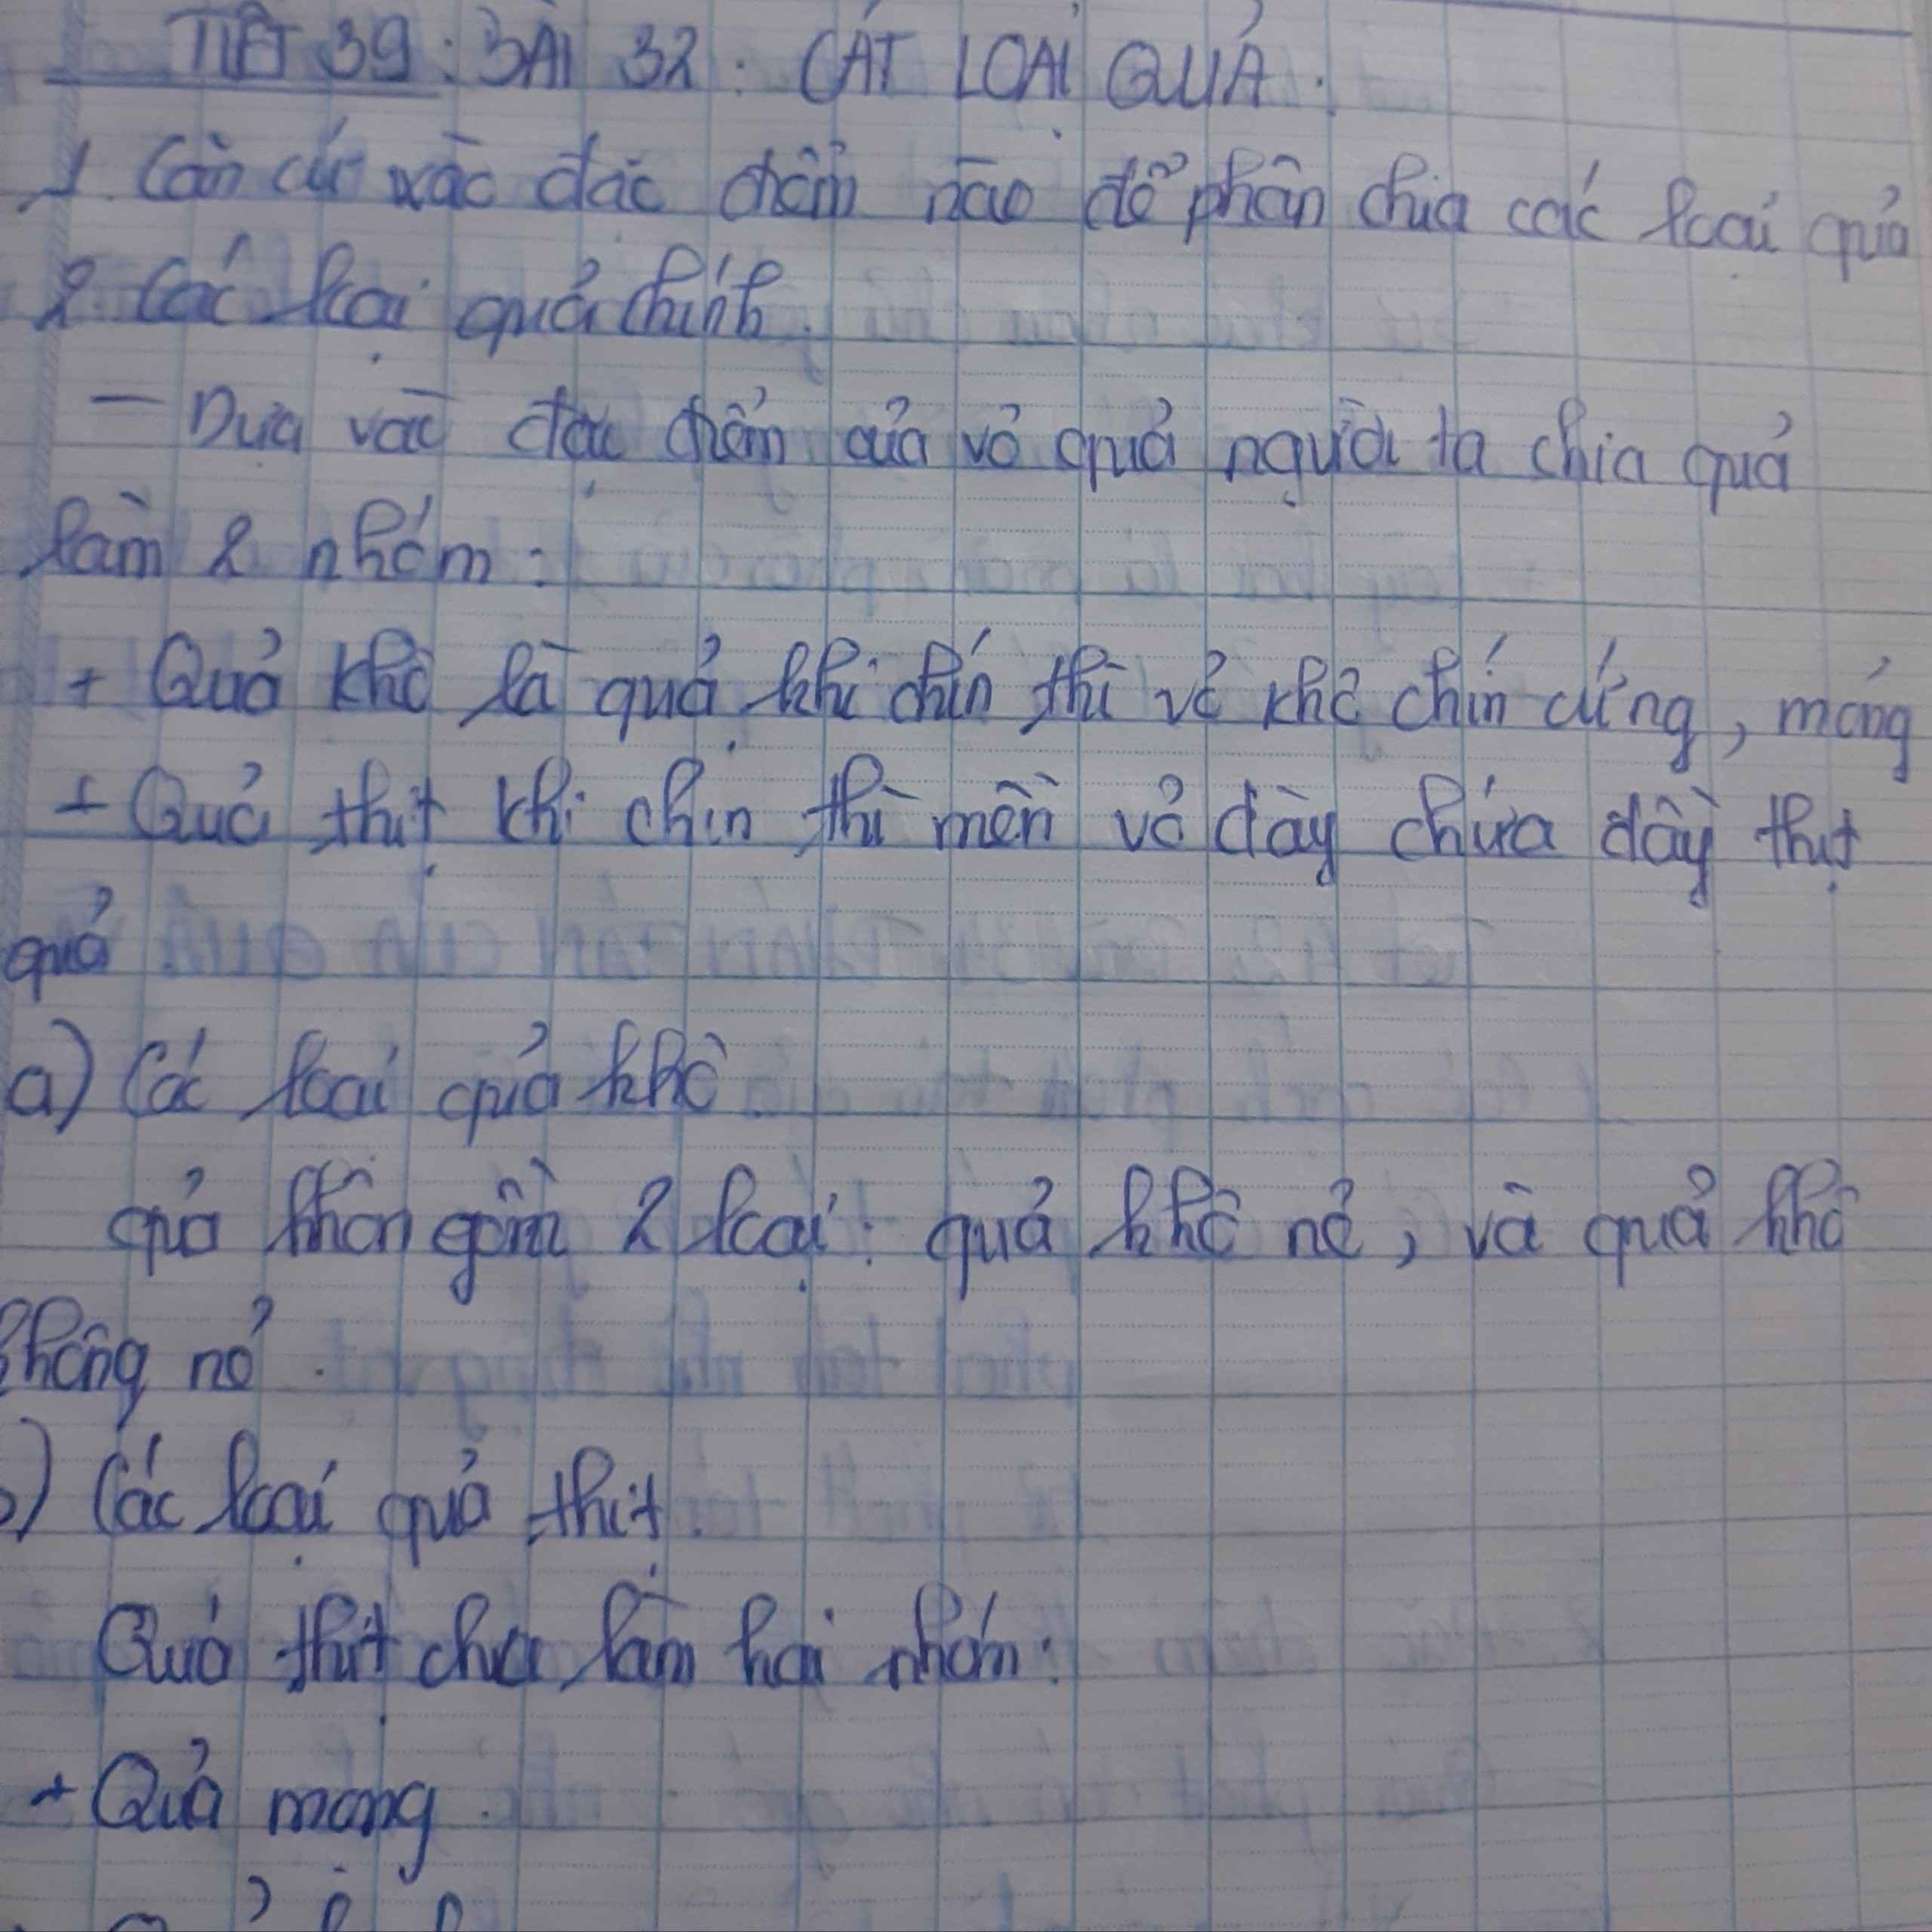 TIẾT 39: BÀI 32: CÁT LOẠI QUẢ.
1 Căn cứ vào đặc điểm nào để phân chia các loại quả
2. Các loại quả chính.
- Dựa vào đặc điểm của vỏ quả người ta chia quả
làm 2 nhóm:
+ Quả khô là quả khi chín thì vỏ khô chín cứng, mỏng
+ Quả thịt khi chín thì mền vỏ dày chứa đầy thịt
quả
a) Các loại quả khô
quả gồm 2 loại: quả khô nẻ, và quả khô
không nẻ.
) Các loại quả thịt.
Quả thịt chia làm hai nhóm:
+ Quả mọng.